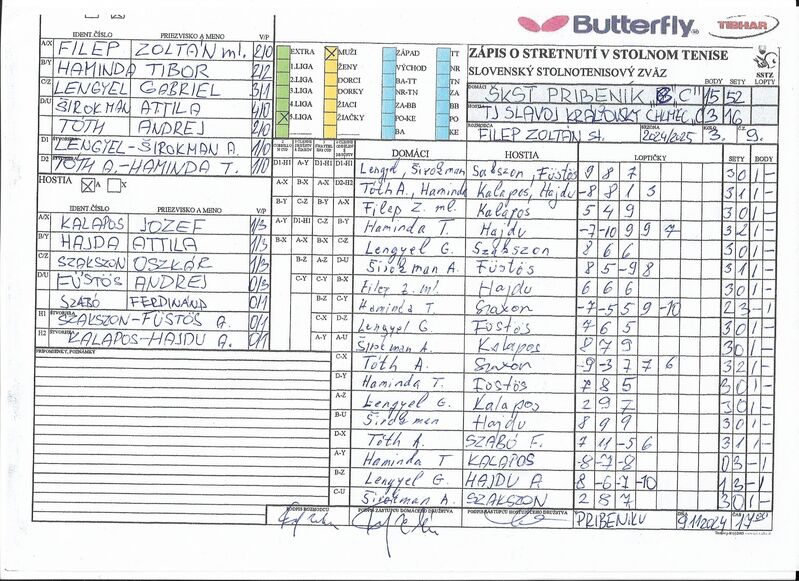 Butterfly
TIBHAR
ZÁPIS O STRETNUTÍ V STOLNOM TENISE
SLOVENSKÝ STOLNOTENISOVÝ ZVÄZ
SSTZ
BODY SETY LOPTY
DOMÁCI ŠKST PRIBENÍK "C" 15 52
TJ SLAVOJ KRÁĽOVSKÝ CHLMEC, C 3 16
ROZHODCA FILEP ZOLTÁN st. SEZÓNA 2024/2025 KOLO 3. Č.Z. 9.
IDENT.ČÍSLO PRIEZVISKO A MENO V/P
A/X FILEP ZOLTÁN ml. 2/0
B/Y HAMINDA TIBOR 2/2
C/Z LENGYEL GABRIEL 3/1
D/U ŠIROKMAN ATTILA 4/0
TÓTH ANDREJ 2/0
D1 ŠTVORHRA LENGYEL-ŠIROKMAN A. 1/0
D2 TÓTH A.-HAMINDA T. 1/0
HOSTIA A X
IDENT.ČÍSLO PRIEZVISKO A MENO V/P
A/X KALAPOS JOZEF 1/3
B/Y HAJDA ATTILA 1/3
C/Z SZAKSZON OSZKÁR 1/3
D/U FÜSTÖS ANDREJ 0/3
SZABÓ FERDINAND 0/1
H1 ŠTVORHRA SZAKSZON-FÜSTÖS A. 0/1
H2 ŠTVORHRA KALAPOS-HAJDU A. 0/1
PRIPOMIENKY, POZNÁMKY
EXTRA MUŽI ZÁPAD TT
1.LIGA ŽENY VÝCHOD NR
2.LIGA DORCI BA-TT TN
3.LIGA DORKY NR-TN ZA
4.LIGA ŽIACI ZA-BB BB
5.LIGA ŽIAČKY PO-KE PO
BA KE
DOMÁCI HOSTIA LOPTIČKY SETY BODY
D1-H1 A-Y D1-H1 D1-H1 Lengyel, Širokman Sakszon, Füstös 9 8 7 3 0 1 -
A-X B-X A-X D2-H2 Tóth A., Haminda Kalapos, Hajdu -8 8 1 3 3 1 1 -
B-Y C-Z B-Y A-X Filep Z. ml. Kalapos 5 4 9 3 0 1 -
Haminda T. Hajdu -7 -10 9 9 7 3 2 1 -
Lengyel G. Szakszon 8 6 6 3 0 1 -
Širokman A. Füstös 8 5 -9 8 3 1 1 -
Filep Z. ml. Hajdu 6 6 6 3 0 1 -
Haminda T. Saxon -7 -5 5 9 -10 2 3 - 1
Lengyel G. Füstös 7 6 5 3 0 1 -
A-U Širokman A. Kalapos 8 7 9 3 0 1 -
C-X Tóth A. Saxon -9 -3 7 7 6 3 2 1 -
D-Y Haminda T. Füstös 7 8 5 3 0 1 -
A-Z Lengyel G. Kalapos 2 9 7 3 0 1 -
B-U Širokman Hajdu 8 9 9 3 0 1 -
D-X Tóth A. SZABÓ F. 7 11 -5 6 3 1 1 -
A-Y Haminda T KALAPOS -8 -7 -8 0 3 - 1
B-Z Lengyel G. HAJDU A. 8 -6 -7 -10 1 3 - 1
C-U Širokman A. SZAKSZON 2 8 7 3 0 1 -
PODPIS ROZHODCU PODPIS ZÁSTUPCU DOMÁCEHO DRUŽSTVA PODPIS ZÁSTUPCU HOSŤUJÚCEHO DRUŽSTVA V PRIBENÍKU DŇA 9.11.2024 ČAS 17:00